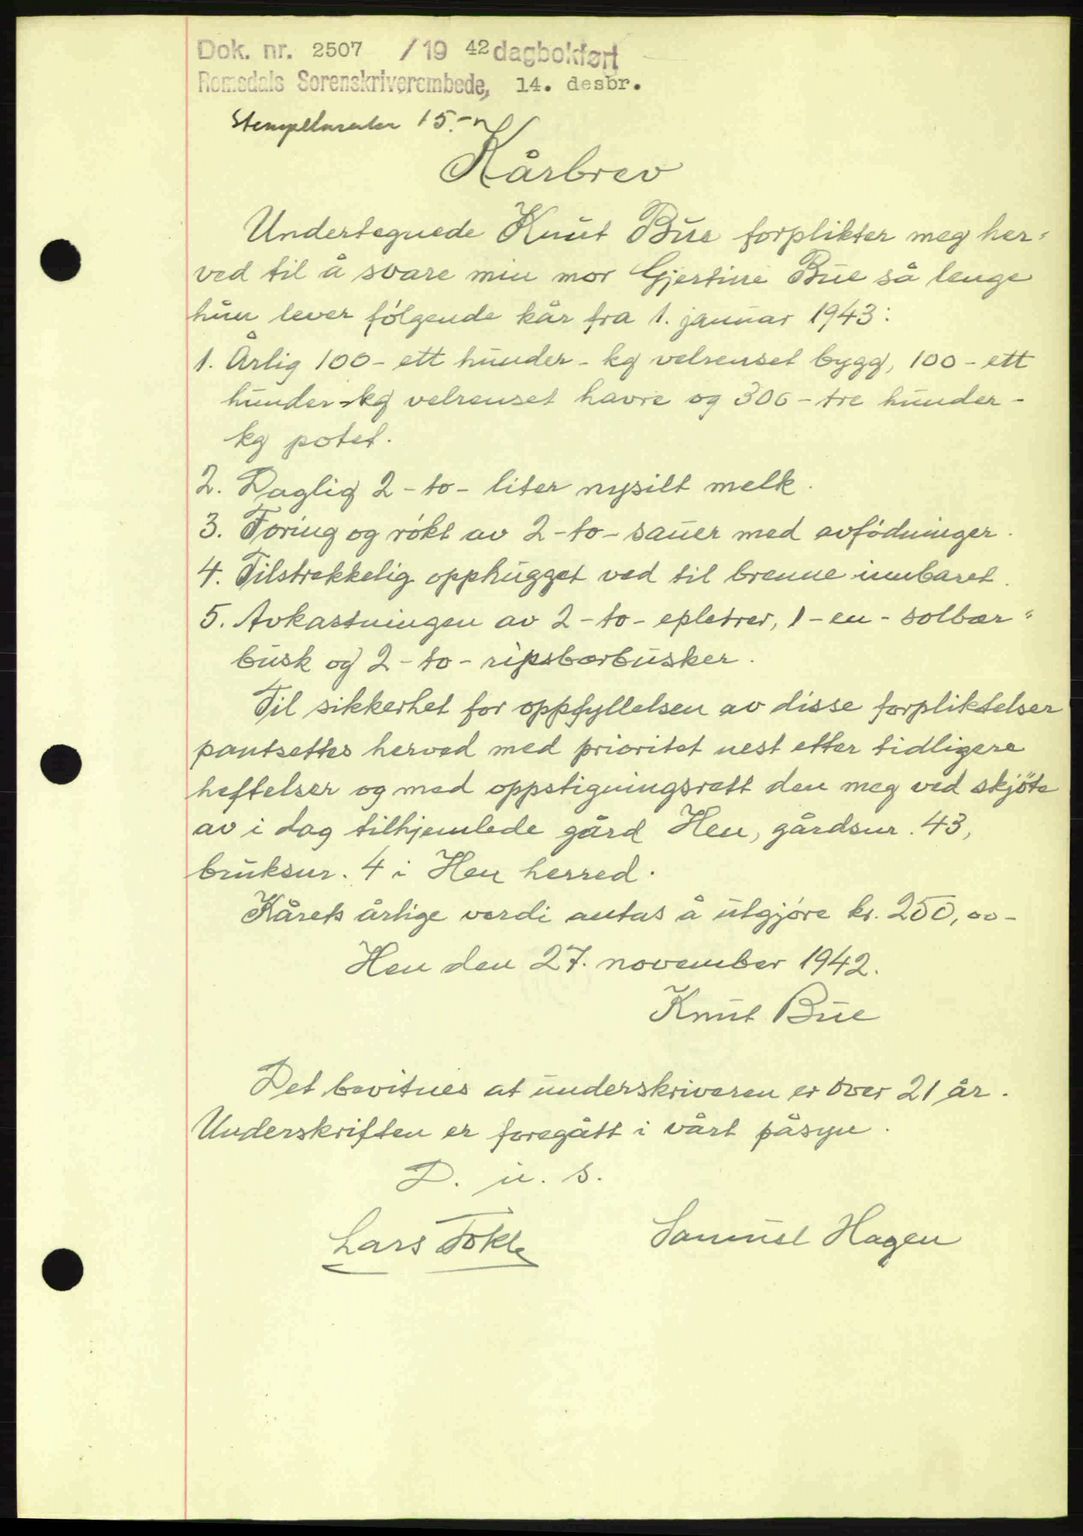 Dok. nr. 2507 / 19 42 dagbokført
Romsdals Sorenskriverembede, 14. desbr.
Stempelmerker 15.-
Kårbrev
Undertegnede Knut Bue forplikter meg her-
ved til å svare min mor Gjertine Bue så lenge
hun lever følgende kår fra 1. januar 1943:
1. Årlig 100 - ett hunder - kg velrenset bygg, 100 - ett
hunder - kg velrenset havre og 300 - tre hunder -
kg potet.
2. Daglig 2 - to - liter nysilt melk.
3. Foring og røkt av 2 - to - sauer med avfødninger.
4. Tilstrekkelig opphugget ved til brenne innbaret.
5. Avkastningen av 2 - to - epletrær, 1 - en - solbær-
busk og 2 - to - ripsbærbusker.
Til sikkerhet for oppfyllelsen av disse forpliktelser
pantsettes herved med prioritet nest etter tidligere
heftelser og med oppstigningsrett den meg ved skjöte
av i dag tilhjemlede gård Hen, gårdsnr. 43,
bruksnr. 4 i Hen herred.
Kårets årlige verdi antas å utgjøre kr. 250,00 -
Hen den 27. november 1942.
Knut Bue
Det bevitnes at underskriveren er over 21 år.
Underskriften er foregått i vårt påsyn.
D. u. s.
Lars Tokle Samuel Hagen